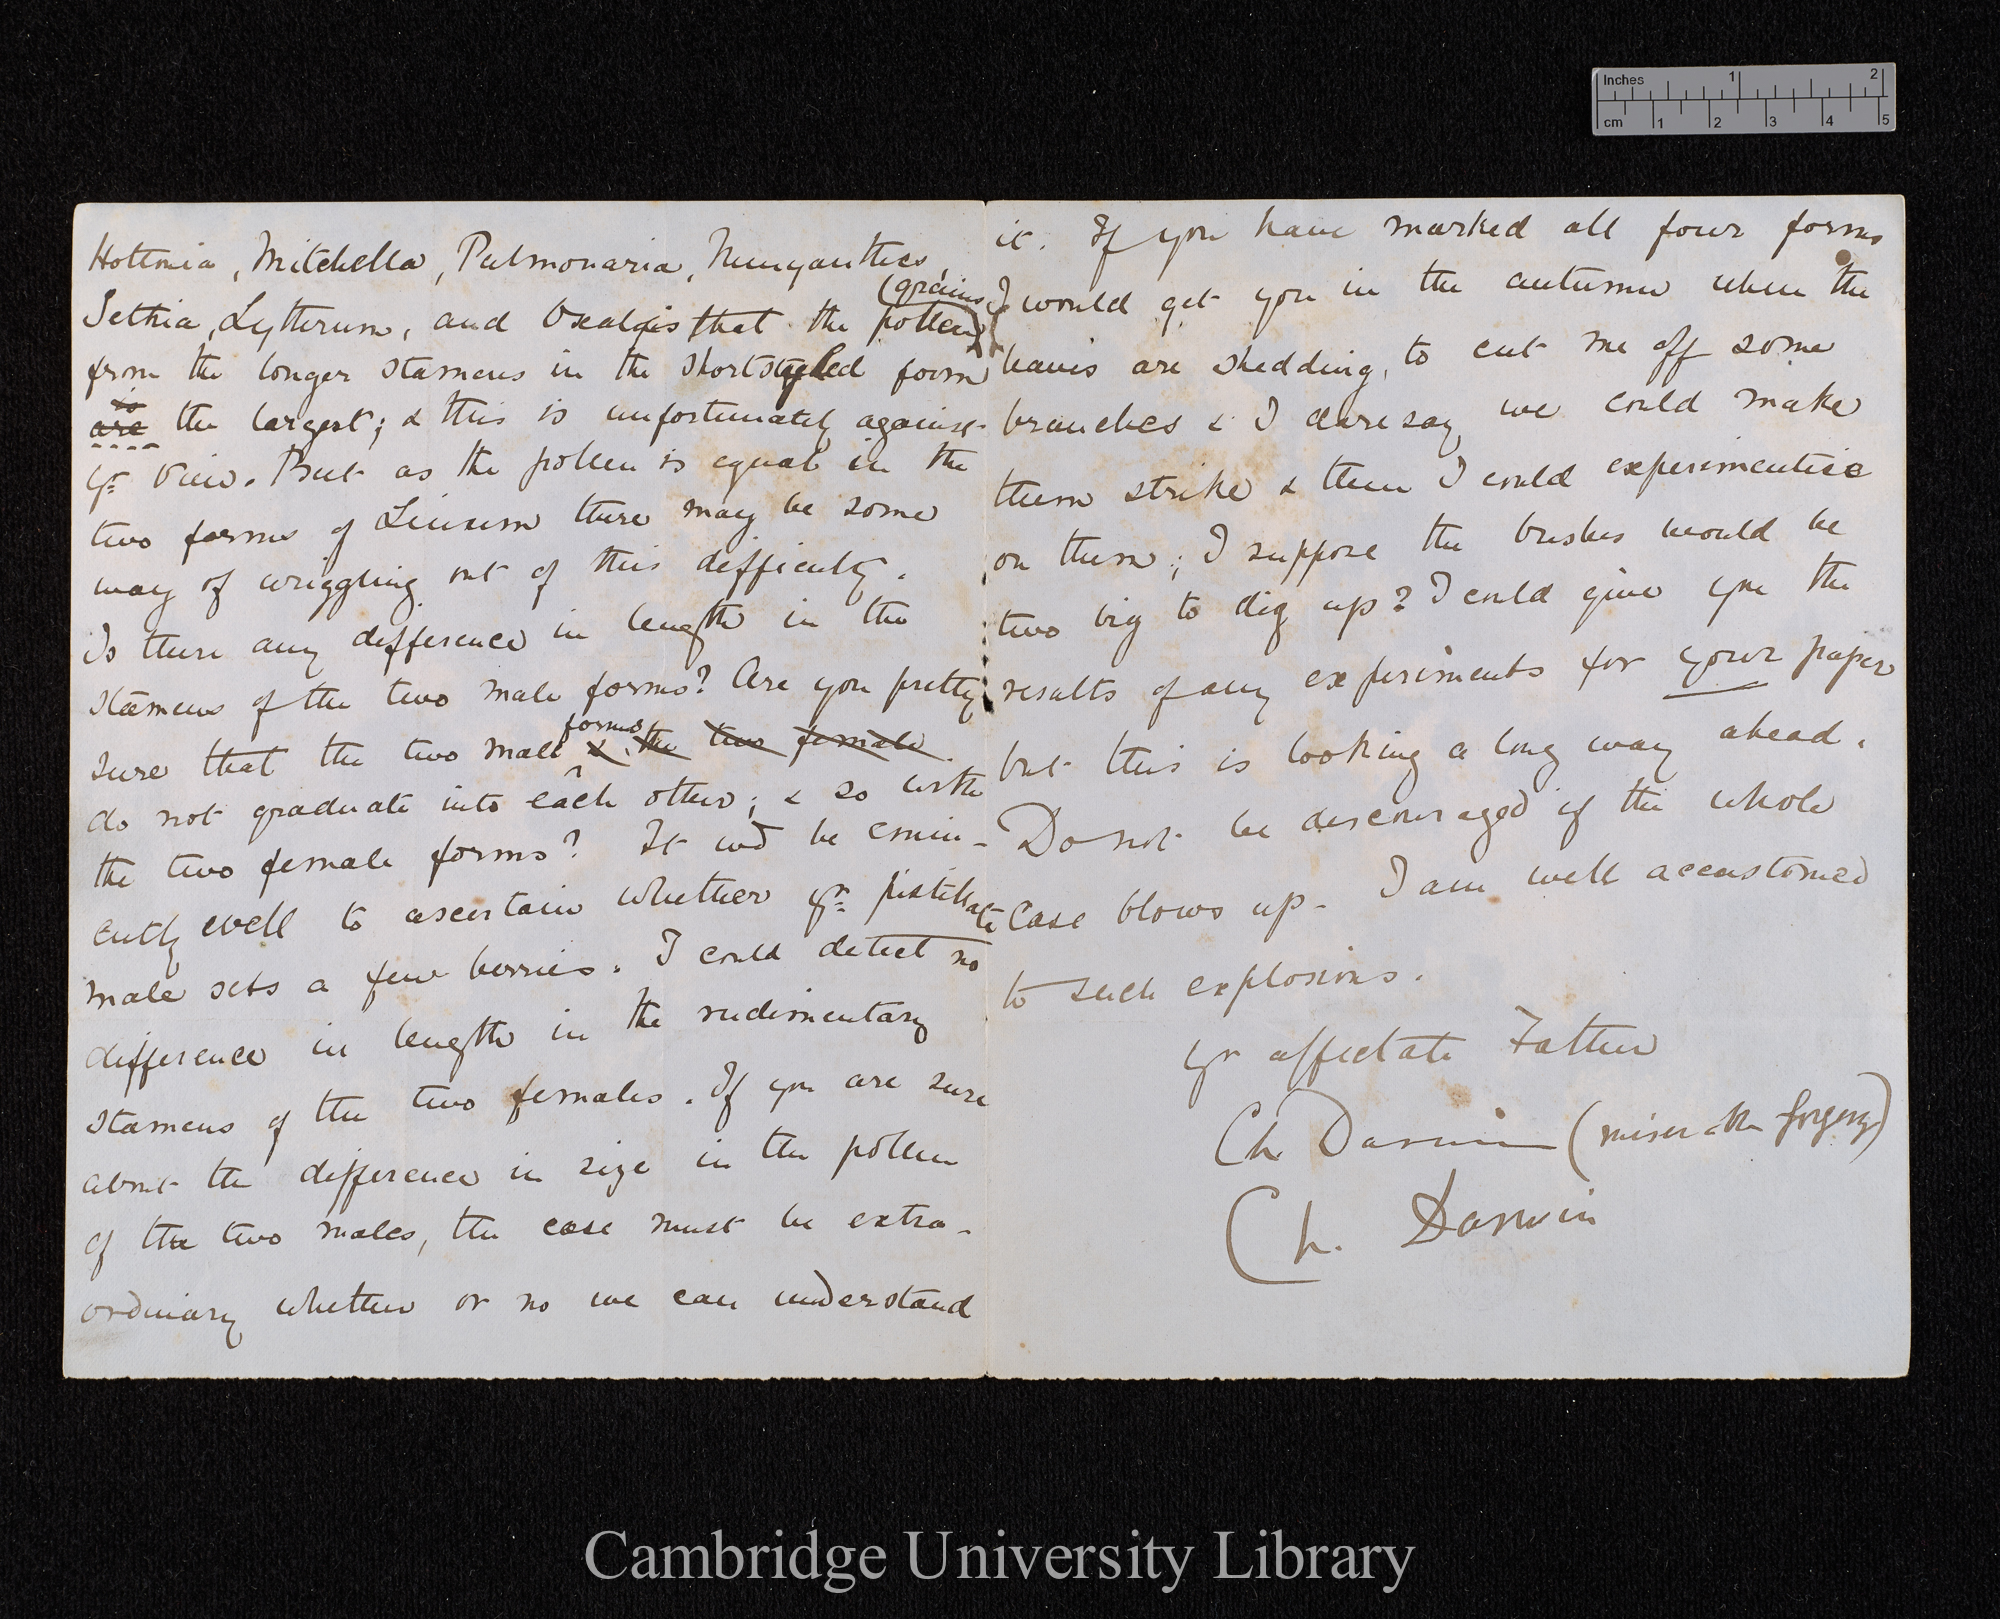 Inches 1 2
cm 1 2 3 4 5
Hottonia, Mitchella, Pulmonaria, Menyanthes,
(grains
Sethia, Lythrum, and Oxalgis that the pollen)
from the longer stamens in the shortstyled form
is
are the largest; & this is unfortunately against
yr view. But as the pollen is equal in the
two forms of Linum there may be some
way of wriggling out of this difficulty.
Is there any difference in length in the
stamens of the two male forms? Are you pretty
forms
sure that the two male & the two female
do not graduate into each other; & so with
the two female forms? It wd be emin-
ently well to ascertain whether yr pistillate
male sets a few berries. I could detect no
difference in length in the rudimentary
stamens of the two females. If you are sure
about the difference in size in the pollen
of the two males, the case must be extra-
ordinary whether or no we can understand
it. If you have marked all four forms
I would get you in the autumn when the
leaves are shedding, to cut me off some
branches & I daresay we could make
them strike & then I could experimentise
on them; I suppose the bushes would be
two big to dig up? I could give you the
results of any experiments for your paper
but this is looking a long way ahead.
Do not be discouraged if the whole
case blows up. I am well accustomed
to such explosions.
yr affectate Father
Ch Darwin (miserable forgery)
Ch. Darwin
Cambridge University Library